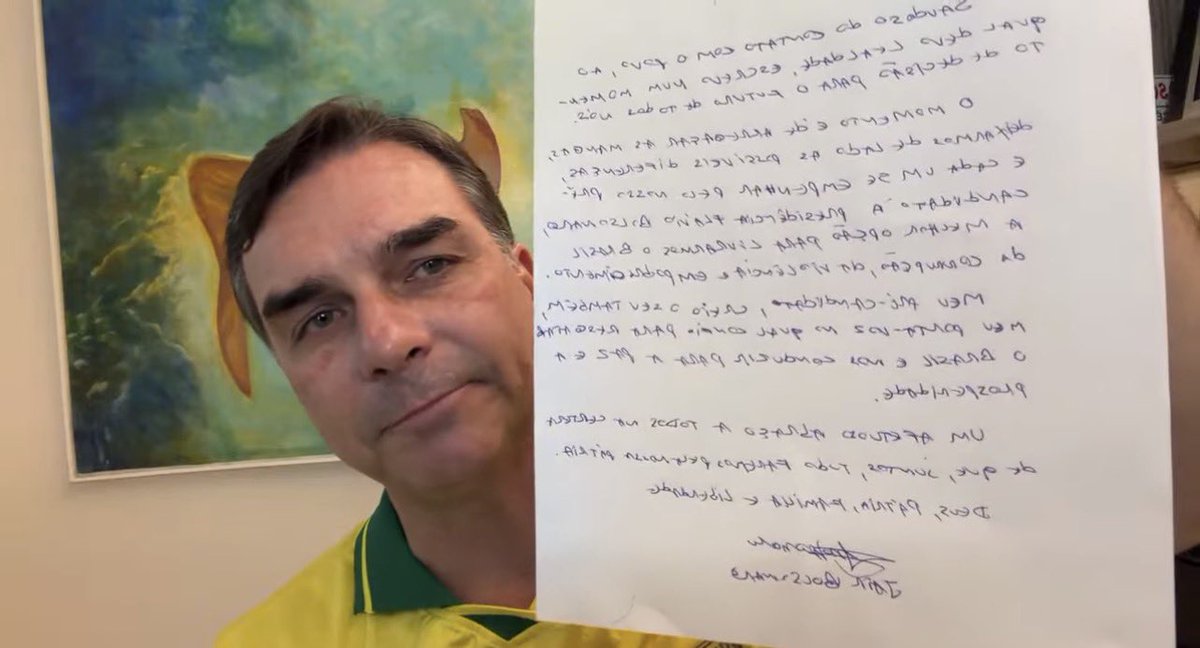 Saudoso do contato com o povo, ao
qual devo lealdade, escrevo num momen-
to de decisão para o futuro de todos nós.
O momento é de arregaçar as mangas,
deixarmos de lado as possíveis diferenças,
e cada um se empenhar pelo nosso pré-
candidato à presidência Flávio Bolsonaro,
a melhor opção para livrarmos o Brasil
da corrupção, da violência e empobrecimento.
Meu pré-candidato, creio o seu também,
meu porta-voz no qual confio para resgatar
o Brasil e nos conduzir para a paz e a
prosperidade.
Um afetuoso abraço a todos na certeza
de que, juntos, tudo faremos pela nossa pátria.
Deus, pátria, família e liberdade
Jair Bolsonaro